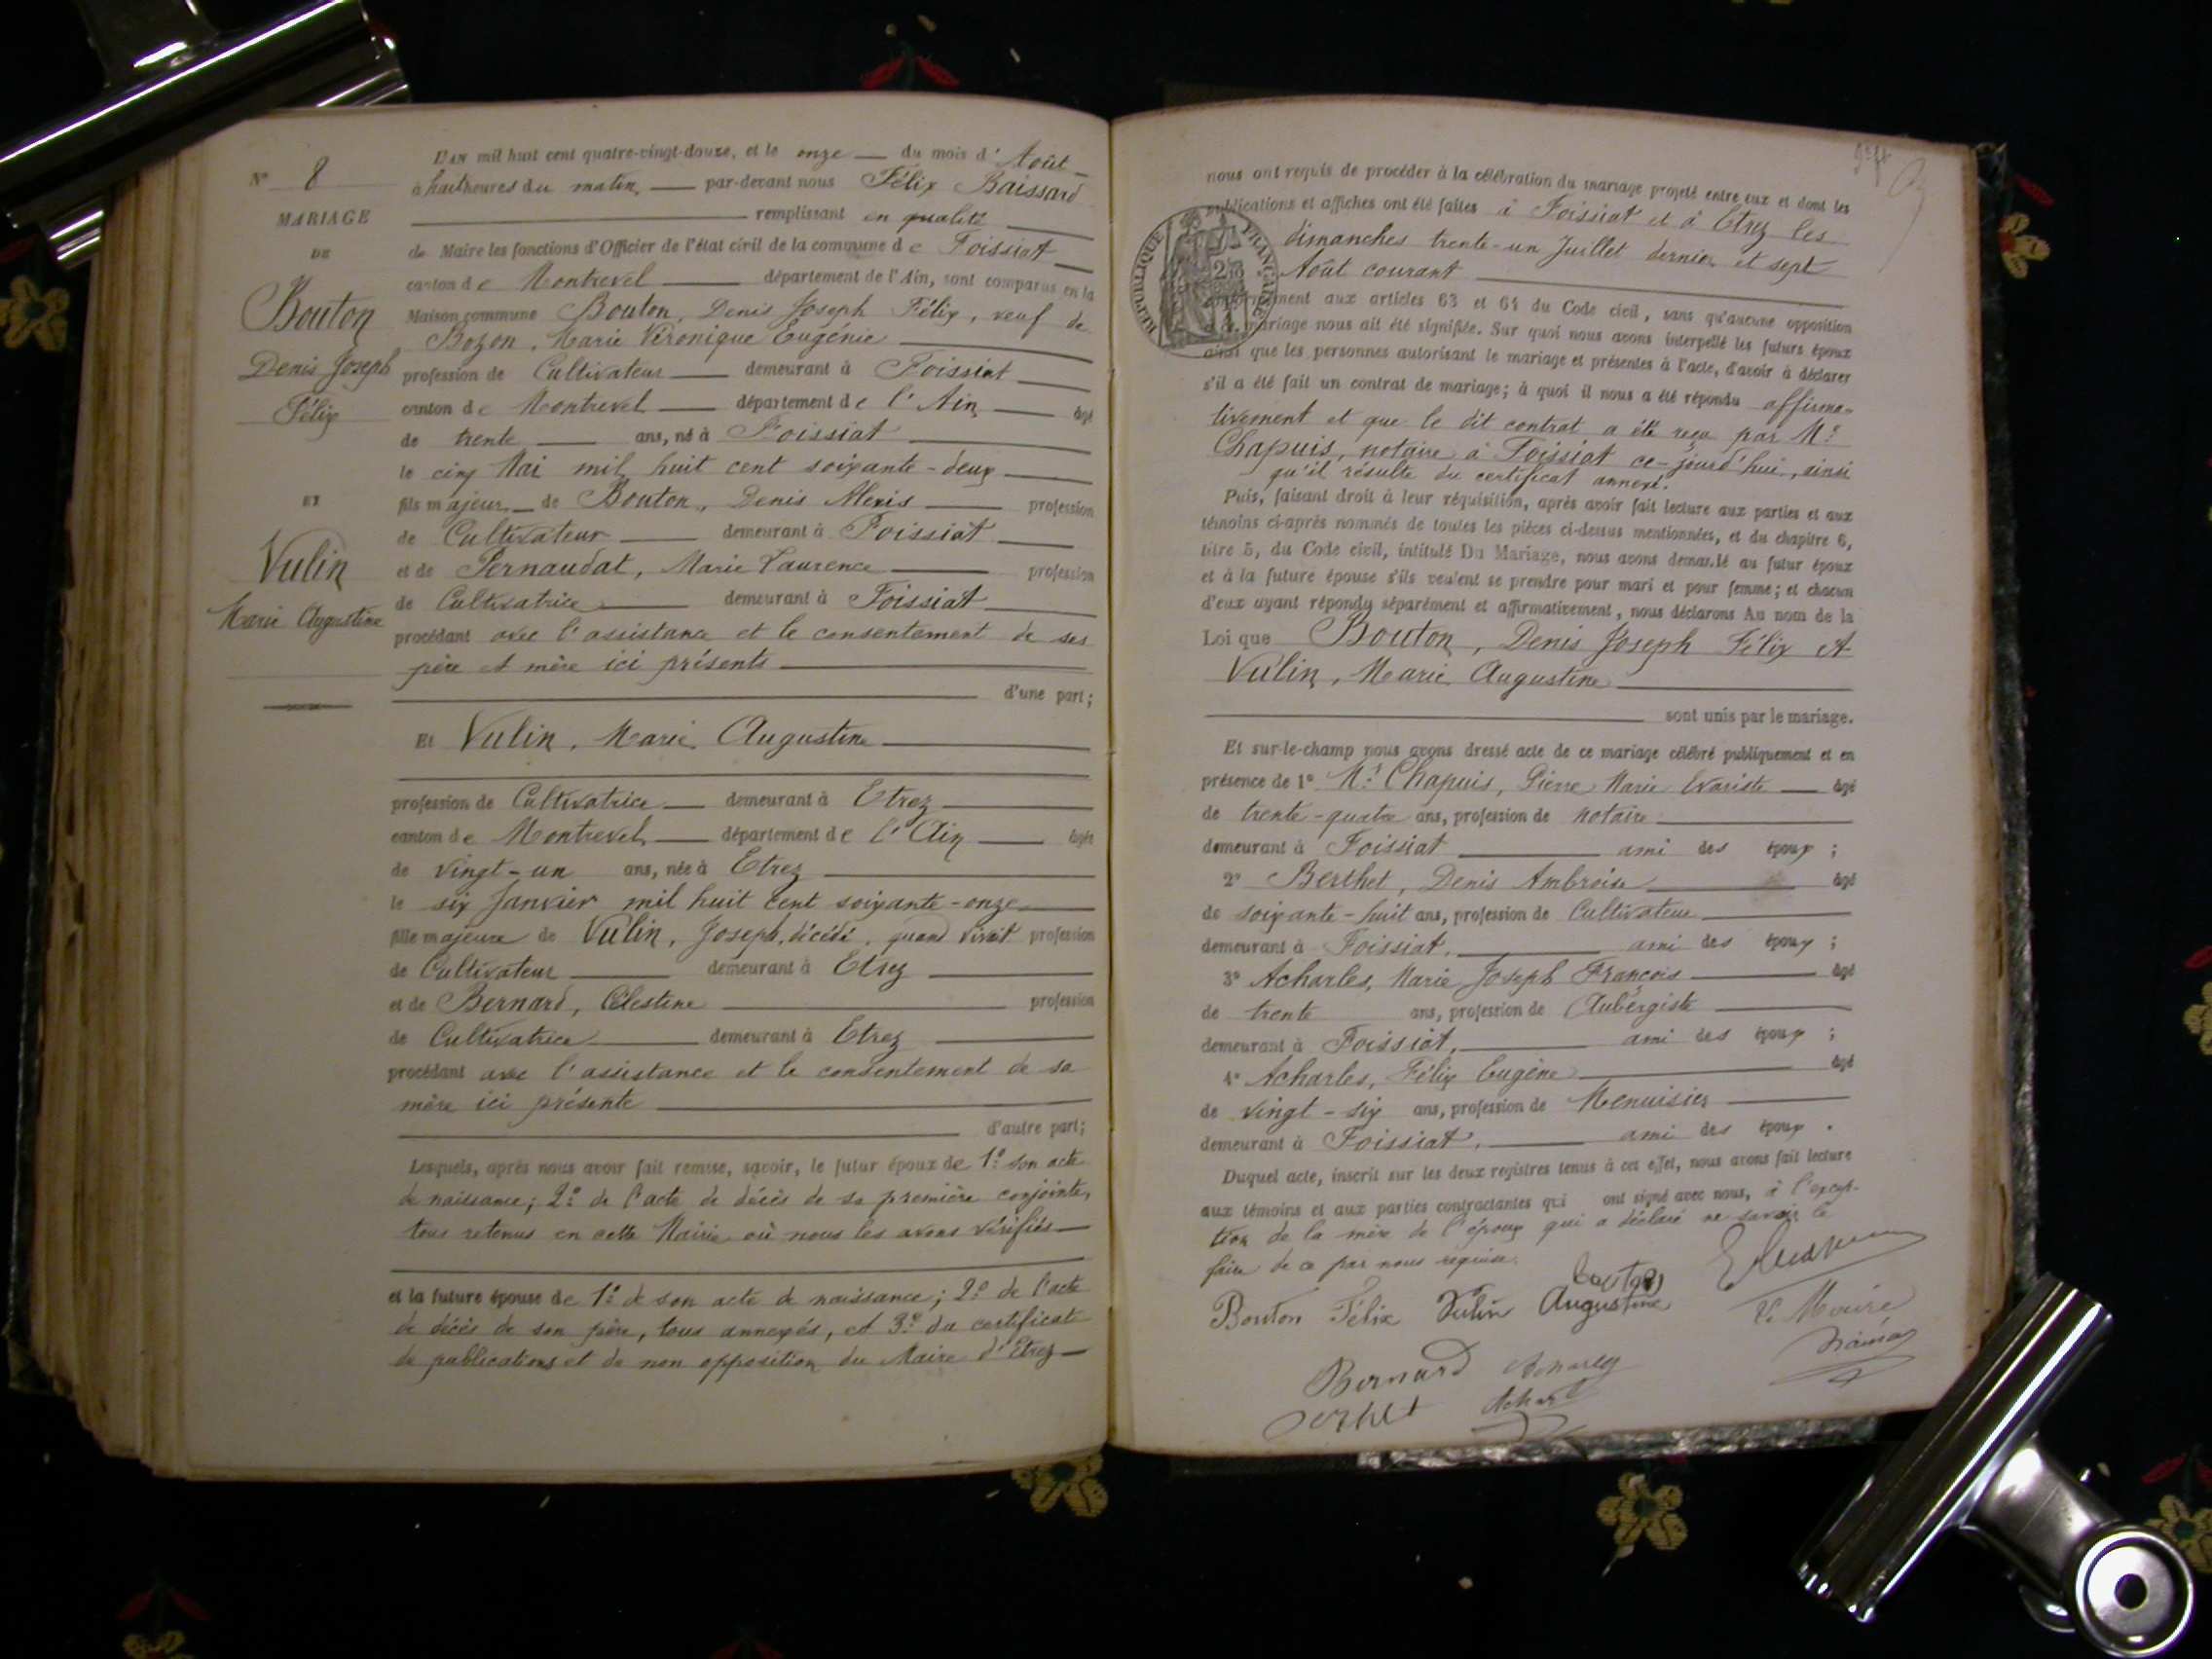 N° 8
MARIAGE
DE
Bouton
Denis Joseph
Félix
ET
Vulin
Marie Augustine
L'AN mil huit cent quatre-vingt-douze, et le onze du mois d'Août
à huit heures du matin, par-devant nous Félix Baissard
remplissant en qualité
de Maire les fonctions d'Officier de l'état civil de la commune de Foissiat
canton de Montrevel département de l'Ain, sont comparus en la
Maison commune Bouton, Denis Joseph Félix, veuf de
Bozon, Marie Véronique Eugénie
profession de Cultivateur demeurant à Foissiat
canton de Montrevel département de l'Ain âgé
de trente ans, né à Foissiat
le cinq Mai mil huit cent soixante-deux
fils majeur de Bouton, Denis Alexis profession
de Cultivateur demeurant à Foissiat
et de Pernaudat, Marie Laurence profession
de Cultivatrice demeurant à Foissiat
procédant avec l'assistance et le consentement de ses
père et mère ici présents
d'une part;
Et Vulin, Marie Augustine
profession de Cultivatrice demeurant à Etrez
canton de Montrevel département de l'Ain âgée
de vingt-un ans, née à Etrez
le six Janvier mil huit cent soixante-onze
fille majeure de Vulin, Joseph, décédé, quand vivait profession
de Cultivateur demeurant à Etrez
et de Bernard, Célestine profession
de Cultivatrice demeurant à Etrez
procédant avec l'assistance et le consentement de sa
mère ici présente
d'autre part;
Lesquels, après nous avoir fait remise, savoir, le futur époux de 1° son acte
de naissance; 2° de l'acte de décès de sa première conjointe,
tous retenus en cette Mairie où nous les avons vérifiés
et la future épouse de 1° de son acte de naissance; 2° de l'acte
de décès de son père, tous annexés, et 3° du certificat
de publications et de non opposition du Maire d'Etrez
nous ont requis de procéder à la célébration du mariage projeté entre eux et dont les
publications et affiches ont été faites à Foissiat et à Etrez les
dimanches trente-un Juillet dernier et sept
Août courant
RÉPUBLIQUE FRANÇAISE
conformément aux articles 63 et 64 du Code civil, sans qu'aucune opposition
mariage nous ait été signifiée. Sur quoi nous avons interpellé les futurs époux
ainsi que les personnes autorisant le mariage et présentes à l'acte, d'avoir à déclarer
s'il a été fait un contrat de mariage; à quoi il nous a été répondu affirma-
tivement et que le dit contrat a été reçu par Mr
Chapuis, notaire à Foissiat ce-jourd'hui, ainsi
qu'il résulte du certificat annexé.
Puis, faisant droit à leur réquisition, après avoir fait lecture aux parties et aux
témoins ci-après nommés de toutes les pièces ci-dessus mentionnées, et du chapitre 6,
titre 5, du Code civil, intitulé Du Mariage, nous avons demandé au futur époux
et à la future épouse s'ils veulent se prendre pour mari et pour femme; et chacun
d'eux ayant répondu séparément et affirmativement, nous déclarons Au nom de la
Loi que Bouton, Denis Joseph Félix et
Vulin, Marie Augustine
sont unis par le mariage.
Et sur-le-champ nous avons dressé acte de ce mariage célébré publiquement et en
présence de 1° Mr Chapuis, Pierre Marie Evariste âgé
de trente-quatre ans, profession de notaire
demeurant à Foissiat ami des époux;
2° Berthet, Denis Ambroise âgé
de soixante-huit ans, profession de Cultivateur
demeurant à Foissiat, ami des époux;
3° Acharles, Marie Joseph François âgé
de trente ans, profession de Aubergiste
demeurant à Foissiat, ami des époux;
4° Acharles, Félix Eugène âgé
de vingt-six ans, profession de Menuisier
demeurant à Foissiat, ami des époux.
Duquel acte, inscrit sur les deux registres tenus à cet effet, nous avons fait lecture
aux témoins et aux parties contractantes qui ont signé avec nous, à l'excep-
tion de la mère de l'époux qui a déclaré ne savoir le
faire de ce par nous requise.
Bouton
Bouton Félix Vulin Augustine
Le Maire
Bernard